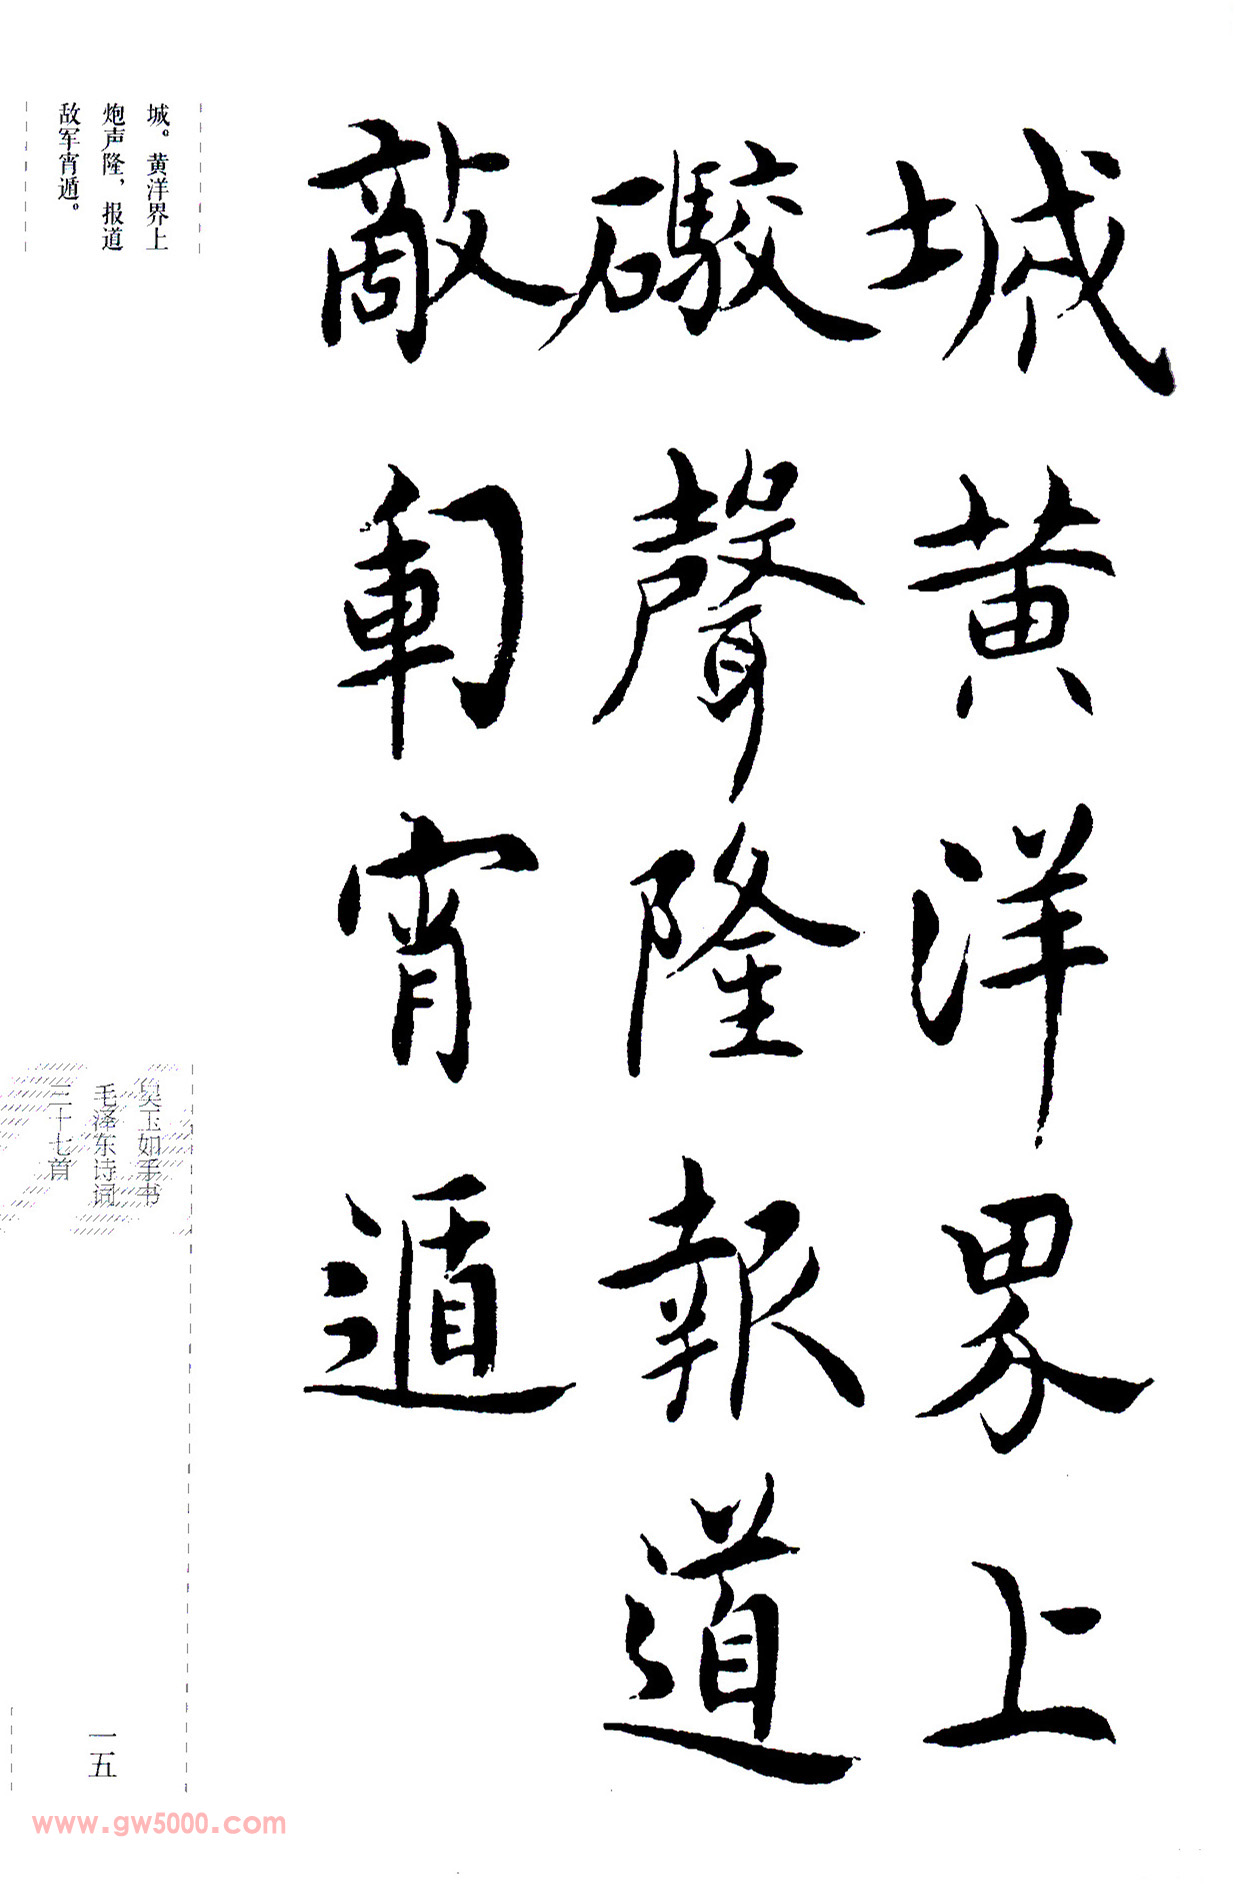 城黄洋界上
礮聲隆報道
敵軍宵遁
城。黄洋界上
炮声隆，报道
敌军宵遁。
吴玉如手书
毛泽东诗词
三十七首
一五
www.gw5000.com